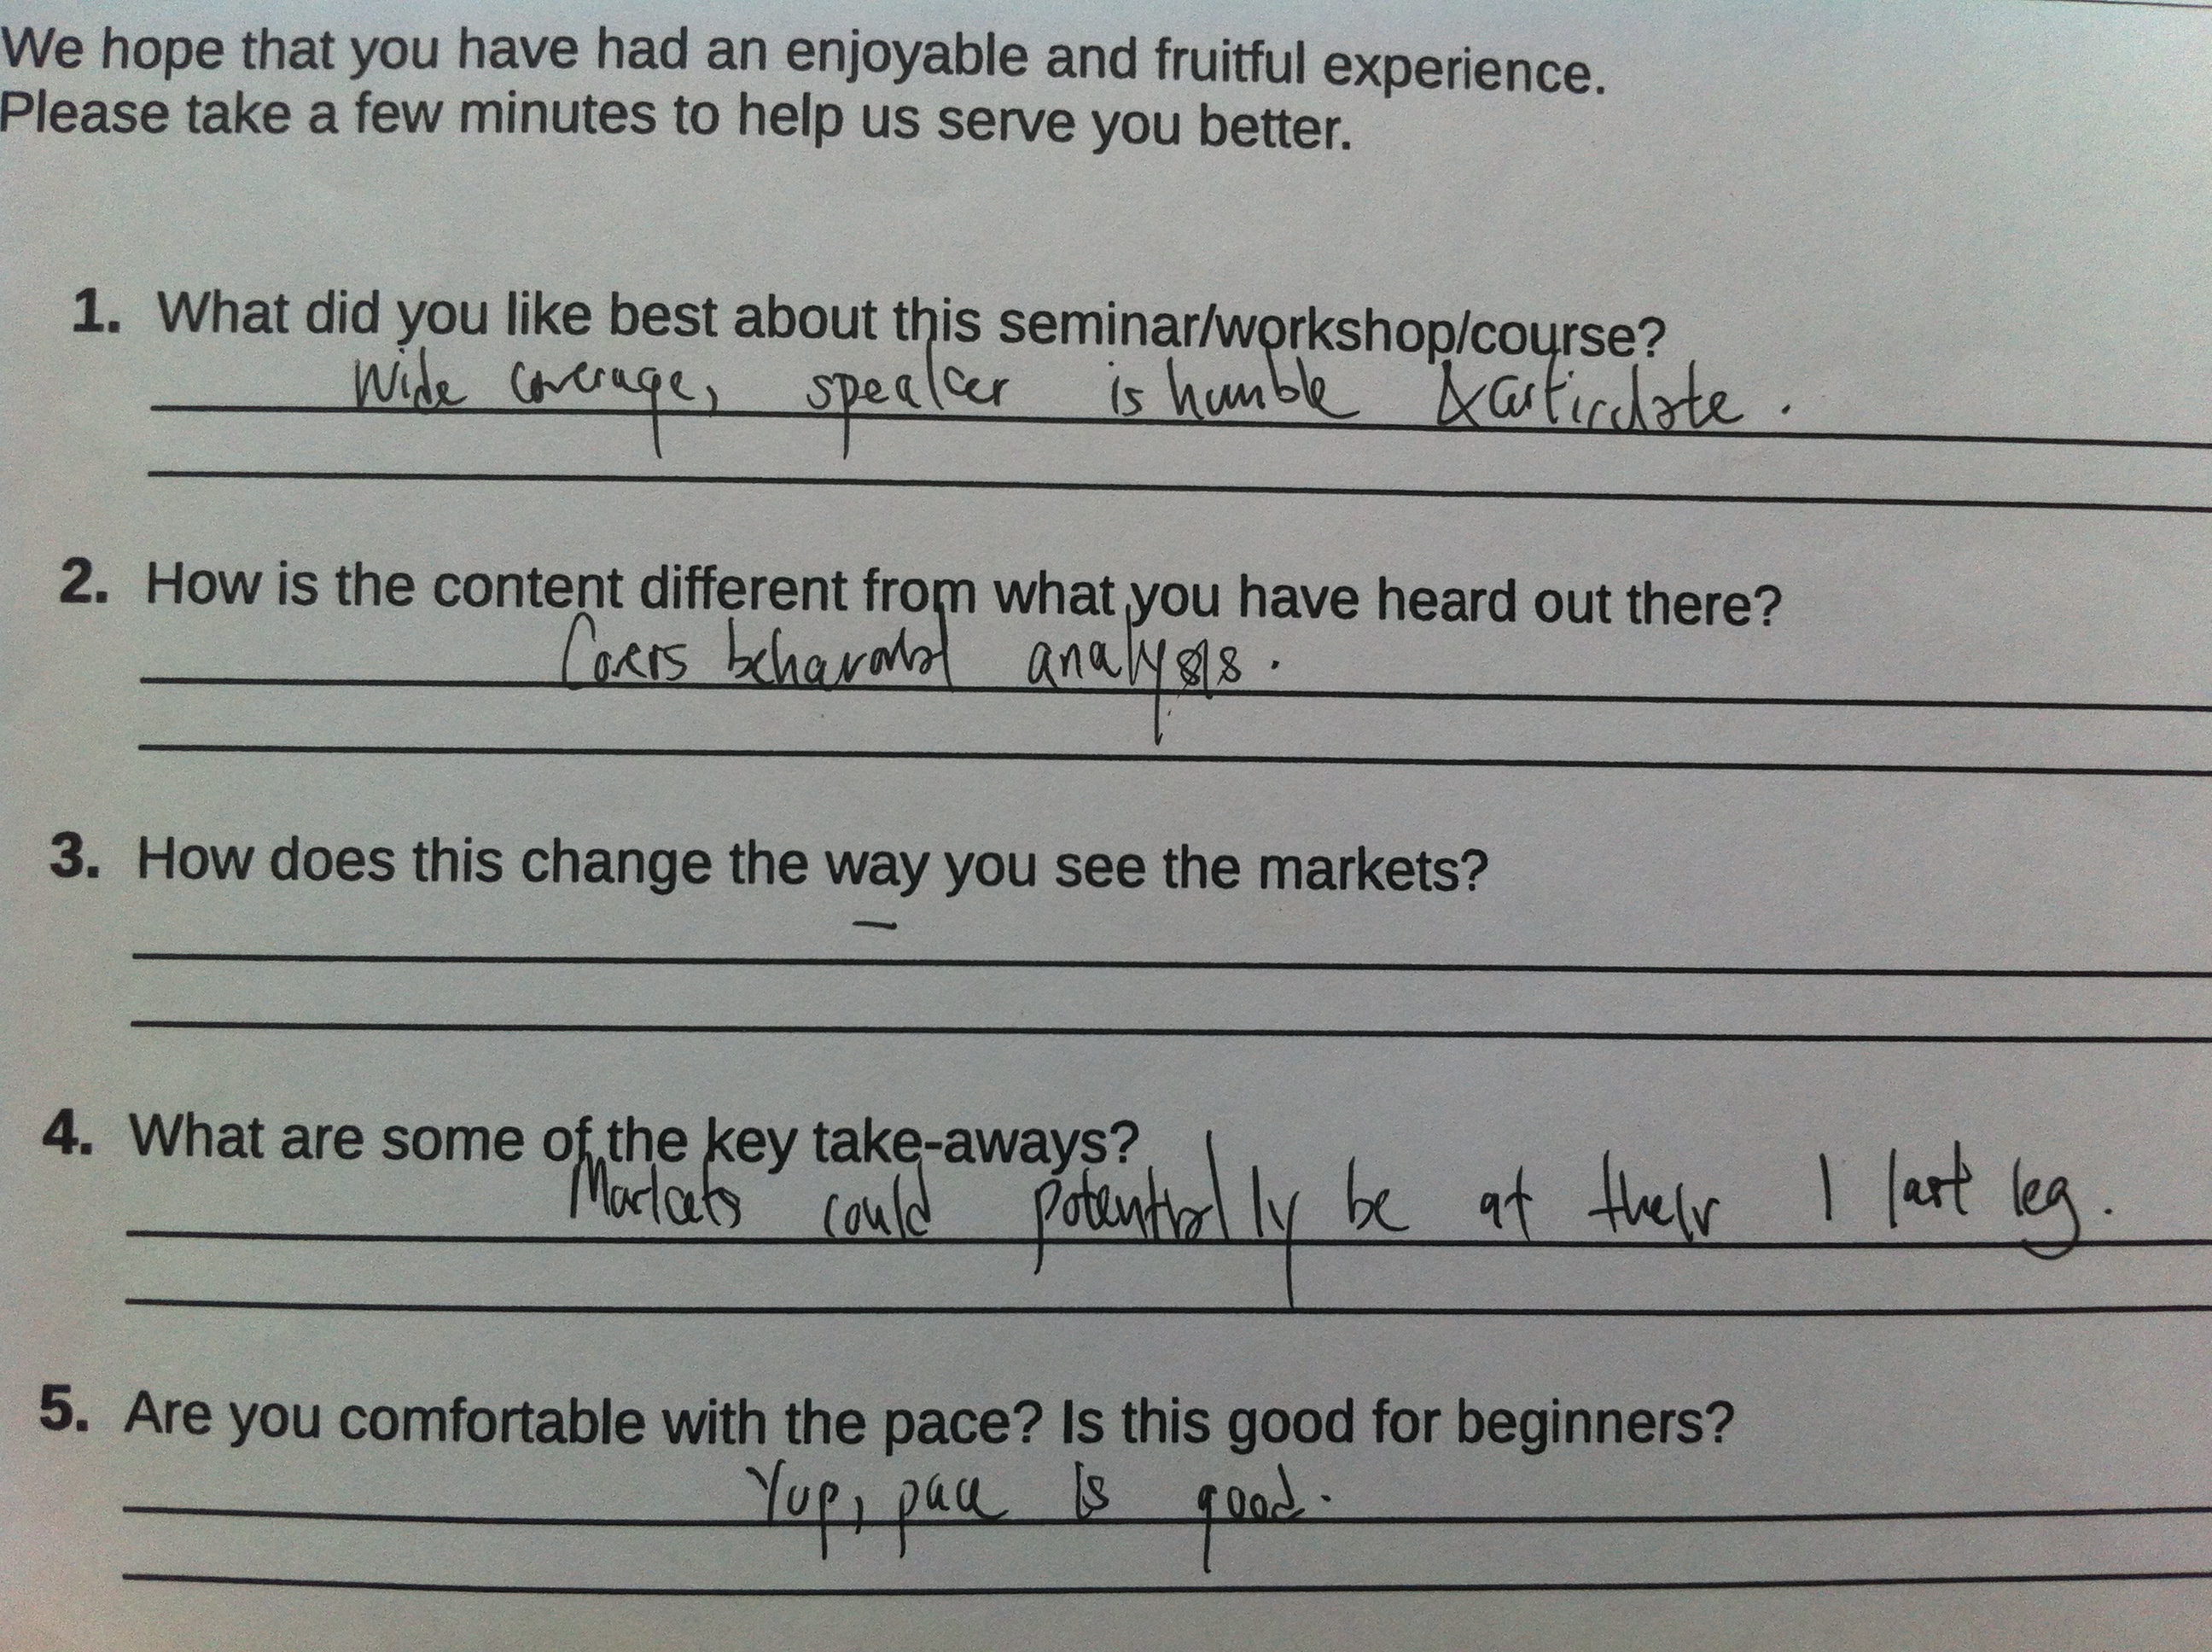 We hope that you have had an enjoyable and fruitful experience.
Please take a few minutes to help us serve you better.
1. What did you like best about this seminar/workshop/course?
Wide coverage, speaker is humble & articulate.
2. How is the content different from what you have heard out there?
Covers behavioral analysis.
3. How does this change the way you see the markets?
–
4. What are some of the key take-aways?
Markets could potentially be at their last leg.
5. Are you comfortable with the pace? Is this good for beginners?
Yup, pace is good.